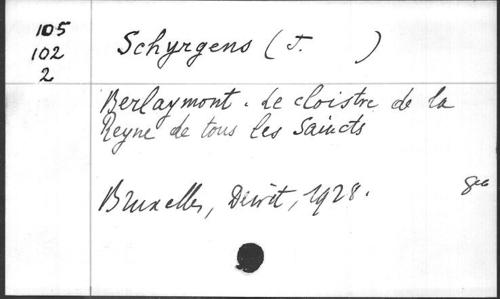 105
102
2
Schyrgens (J. )
Berlaymont. Le cloistre de la
Reyne de tous les Saincts
Bruxelles, Dewit, 1928.